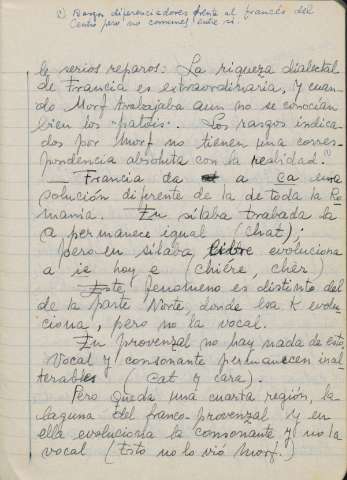 2) Rasgos diferenciadores frente al francés del
Centro pero no comunes entre si.
le serios reparos: La riqueza dialectal
de Francia es extraordinaria, y cuan-
do Morf trabajaba aun no se conocían
bien los "patois". Los rasgos indica-
dos por Morf no tienen una corres-
pondencia absoluta con la realidad.
— Francia da a ca una
solución diferente de la de toda la Ro-
mania. En silaba trabada la
a permanece igual (chat);
pero en silaba libre evoluciona
a ie hoy e (chière, chèr)
— Este fenomeno es distinto del
de la parte Norte, donde esa K evolu-
ciona, pero no la vocal.
En provenzal no hay nada de esto,
Vocal y consonante permanecen inal-
terables (cat y cara).
Pero queda una cuarta región, la
laguna del franco-provenzal y en
ella evoluciona la consonante y no la
vocal (Esto no lo vió Morf.)